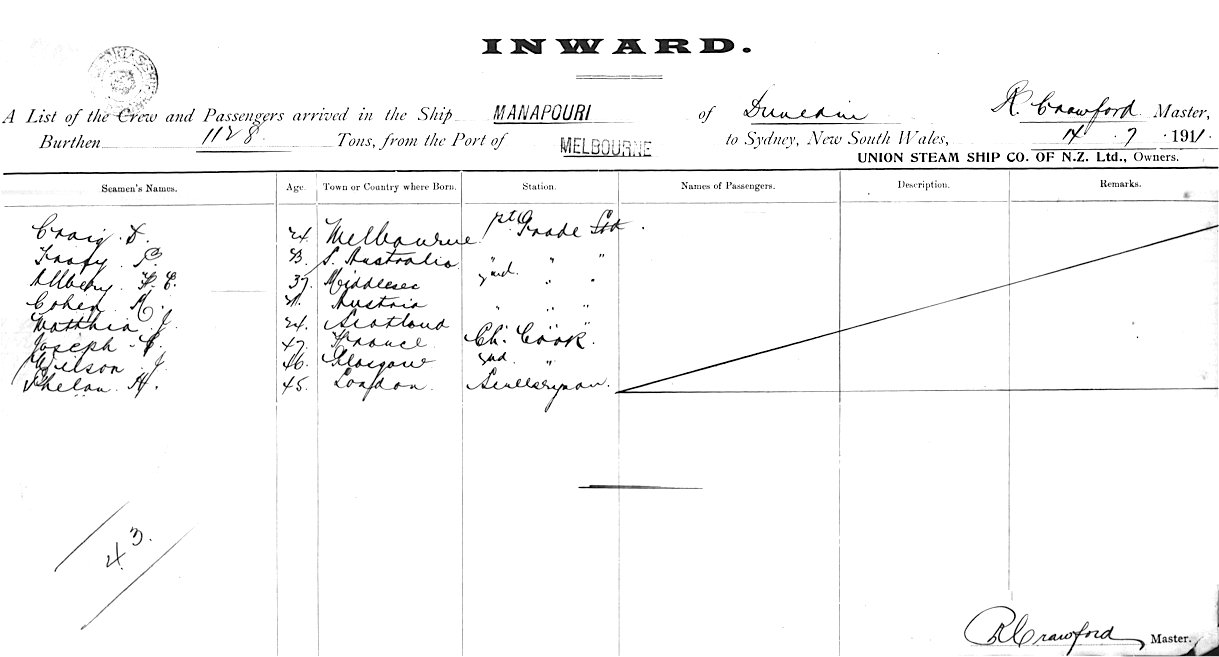 INWARD.
A List of the Crew and Passengers arrived in the Ship MANAPOURI of Dunedin R. Crawford Master,
Burthen 1128 Tons, from the Port of MELBOURNE to Sydney, New South Wales, 14 . 7 . 1911.
UNION STEAM SHIP CO. OF N.Z. Ltd., Owners.
Seamen's Names. Age. Town or Country where Born. Station. Names of Passengers. Description. Remarks.
Craig D. 24 Melbourne 1st Grade Std.
P. 23. S. Australia " " "
37. Middlesex 2nd " "
Cohen 21. Austria " " "
J. 24. Scotland " " "
Joseph C. 47. France Ch. Cook.
Wilson J. 46. Glasgow 2nd "
Phelan H. 45. London Sculleryman.
43.
R Crawford Master.